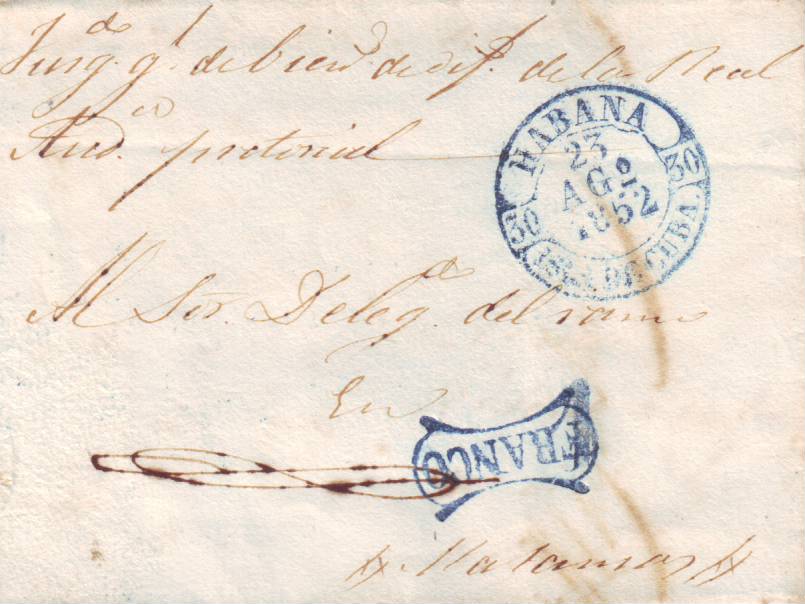 Juzg.do gl. de bien.s de dif.s de la Real
Aud.cia pretorial
HABANA
23
AGO.
1852
30
30
ISLA DE CUBA.
Al Sor. Deleg.do del ramo
En
FRANCO
Matanzas